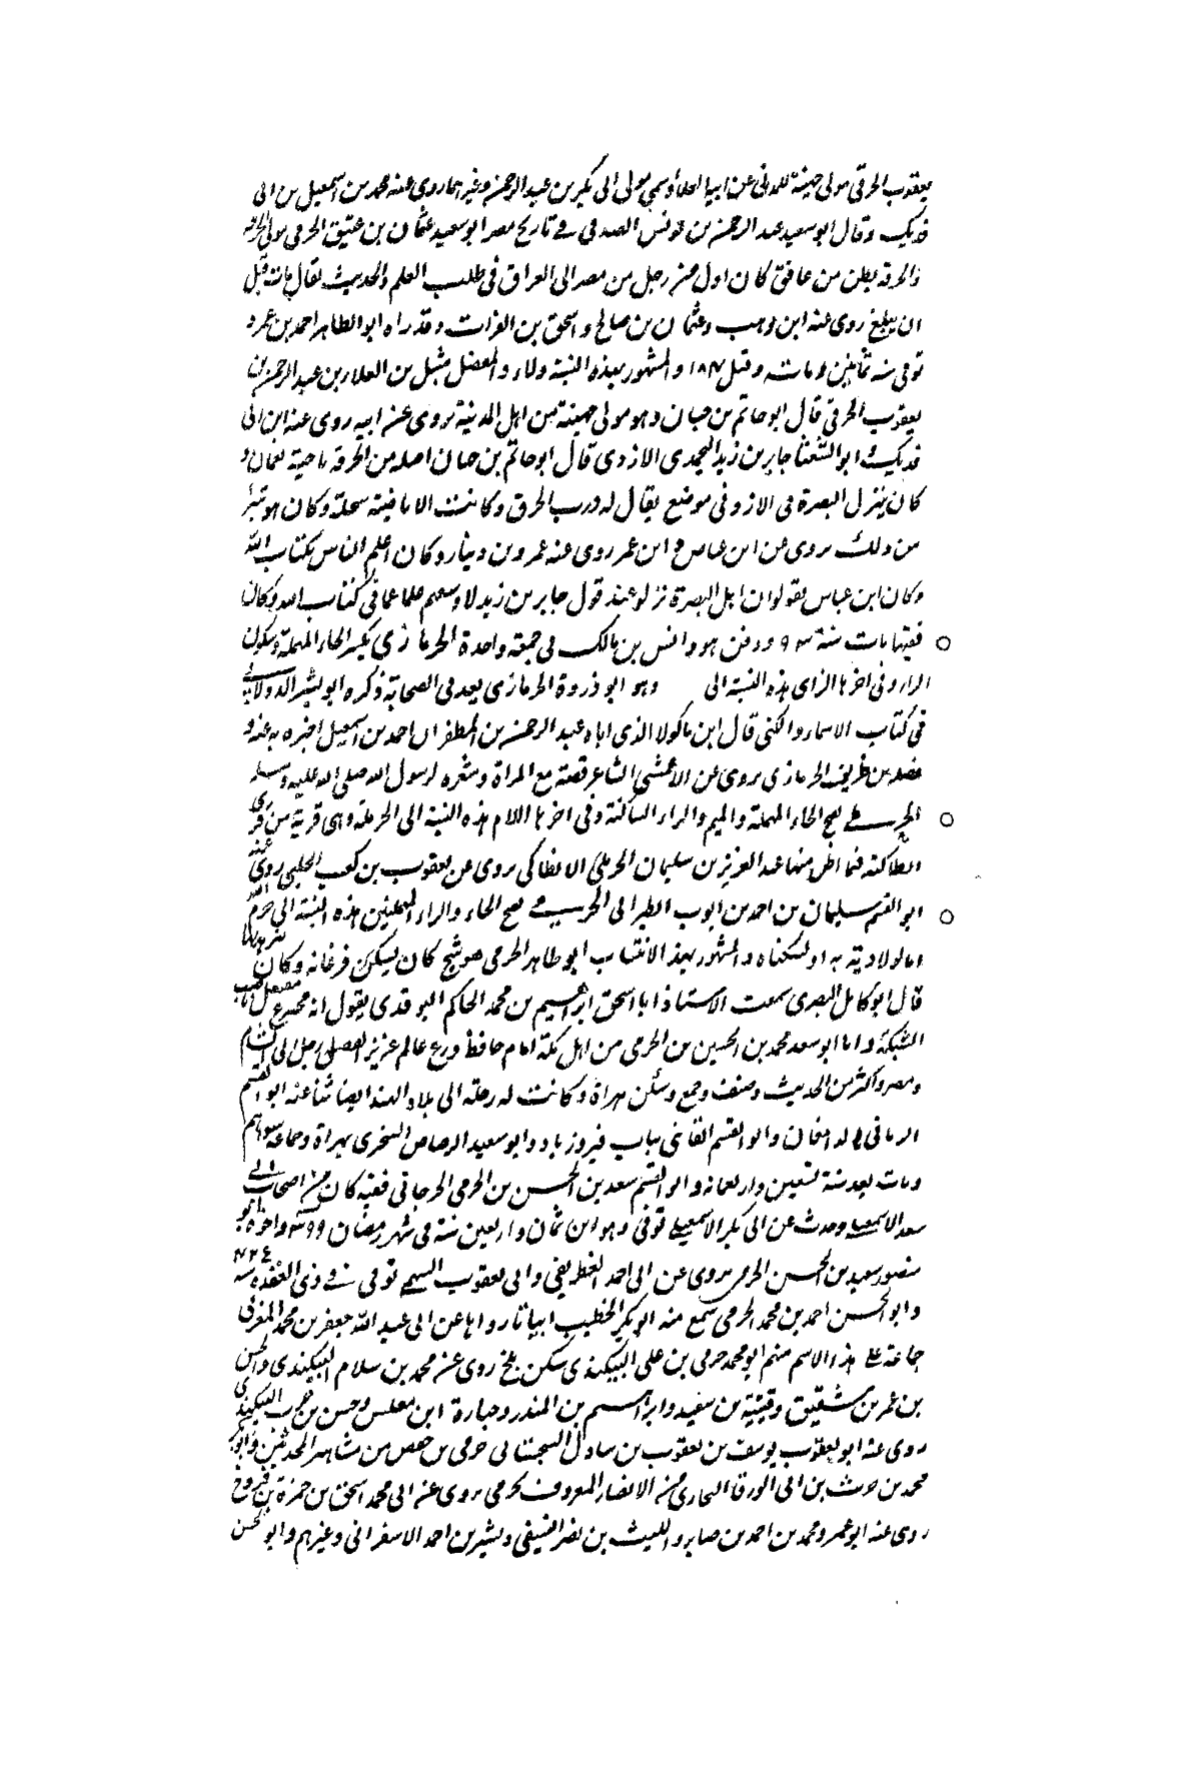 يعقوب الحرقي مولى جهينة المدني عن ابيه العلاء وسمي مولى ابي بكر بن عبد الرحمن وغيرهما روى عنه محمد بن اسمعيل بن ابي
فديك وقال ابو سعيد عبد الرحمن بن يونس الصدفي في تاريخ مصر ابو سعيد عثمان بن عتيق الحرقي مولى الحرقة
والحرقة بطن من غافق كان اول من رحل من مصر الى العراق في طلب العلم والحديث يقال مات قبل
ان يبلغ روى عنه ابن وهب وعثمان بن صالح واسحق بن الفرات وقد راه ابو الطاهر احمد بن عمرو
توفي سنة ثمانين ومائة وقيل ١٨٤ والمشهور بهذه النسبة ولاء والمفضل شبل بن العلاء بن عبد الرحمن بن
يعقوب الحرقي قال ابو حاتم بن حبان وهو مولى جهينة من اهل المدينة يروى عن ابيه روى عنه ابن ابي
فديك و ابو الشعثا جابر بن زيد اليحمدى الازدى قال ابو حاتم بن حبان اصله من الحرقة ناحية بعمان و
كان ينزل البصرة في الازد في موضع يقال له درب الحرق وكانت الاباضية تنتحله وكان هو تبرأ
من ذلك يروى عن ابن عباس و ابن عمر روى عنه عمرو بن دينار وكان اعلم الناس بكتاب الله
وكان ابن عباس يقول لو ان اهل البصرة نزلوعند قول جابر بن زيد لا وسعهم علما عما في كتاب الله وكان
فقيها مات سنة ٩٣ ودفن هو وانس بن مالك في جمعة واحدة الحرمازى بكسر الحاء المهملة وسكون
الراء وفي اخرها الزاى هذه النسبة الى وهو ابو ذروة الحرمازى يعد في الصحابة ذكره ابو بشر الدولابى
في كتاب الاسماء والكنى قال ابن ماكولا الذى اباه عبد الرحمن بن المظفر ان احمد بن اسمعيل اخبره به عنه و
نضلة بن طريف الحرمازى يروى عن الاعشى الشاعر قصة مع المراة وشعره لرسول الله صلى الله عليه وسلم
الحرملى بفتح الحاء المهملة والميم والراء الساكنة وفي اخرها اللام هذه النسبة الى الحرملة وهى قرية من قرى
انطاكية فيما اظن منها عبد العزيز بن سليمان الحرملى الانطاكى يروى عن يعقوب بن كعب الحلبى روى عنه
ابو القسم سليمان بن احمد بن ايوب الطبرانى الحرمى بفتح الحاء والراء المهملتين هذه النسبة الى حرم الله
اما لولادته به او لسكناه والمشهور بهذا الانتساب ابو طاهر الحرمى هو شيخ كان يسكن فرغانة وكان
قال ابو كامل البصرى سمعت الاستاذ ابا اسحق ابراهيم بن محمد الحاكم النوقدى يقول انه
الشبكة و اما ابو سعد محمد بن الحسين بن الحرمى من اهل مكة امام حافظ ورع عالم عزيز الفضل رحل الى الشام
ومصر واكثر من الحديث وصنف وجمع وسكن هراة وكانت له رحلة الى بلاد الهند ايضا ثنا عنه ابو القسم
الرمانى بالدامغان وابو القسم القاينى بباب فيروزباد وابو سعيد الرصاص السجزى بهراة وجماعة سواهم
ومات بعد سنة تسعين واربعمائة و ابو القسم سعد بن الحسن بن الحرمى الجرجانى فقيه كان من اصحاب ابى
سعد الاسمعيلى وحدث عن ابى بكر الاسمعيلى توفي وهو ابن ثمان واربعين سنة في شهر رمضان ٣٩٩ واخوه ابو
منصور سعيد بن الحسن الحرمى يروى عن ابى احمد الغطريفى وابى يعقوب السهمى توفي في ذى القعده سنة ٤٢٤
وابو الحسن احمد بن محمد الحرمى سمع منه ابو بكر الخطيب ابياتا رواها عن ابى عبد الله جعفر بن محمد المغربى
جماعة على هذا الاسم منهم ابو محمد حرمى بن على البيكندى سكن بلخ روى عن محمد بن سلام البيكندى والحسن
بن عمر بن شقيق وقتيبة بن سعيد وابراهيم بن المنذر وجبارة ابن مغلس وحسن بن حرب البيكندى
روى عنه ابو يعقوب يوسف بن يعقوب بن ساذل السجستانى حرمى بن حفص من مشاهير المحدثين وابو
محمد بن حريث بن ابى الورقا البخارى من الانصار المعروف بحرمى يروى عن ابى محمد اسحق بن حمزة بن فروخ
روى عنه ابو عمرو محمد بن احمد بن صابر والليث بن نصر النسفى وبشر بن احمد الاسفرائنى وغيرهم وابو الحسن